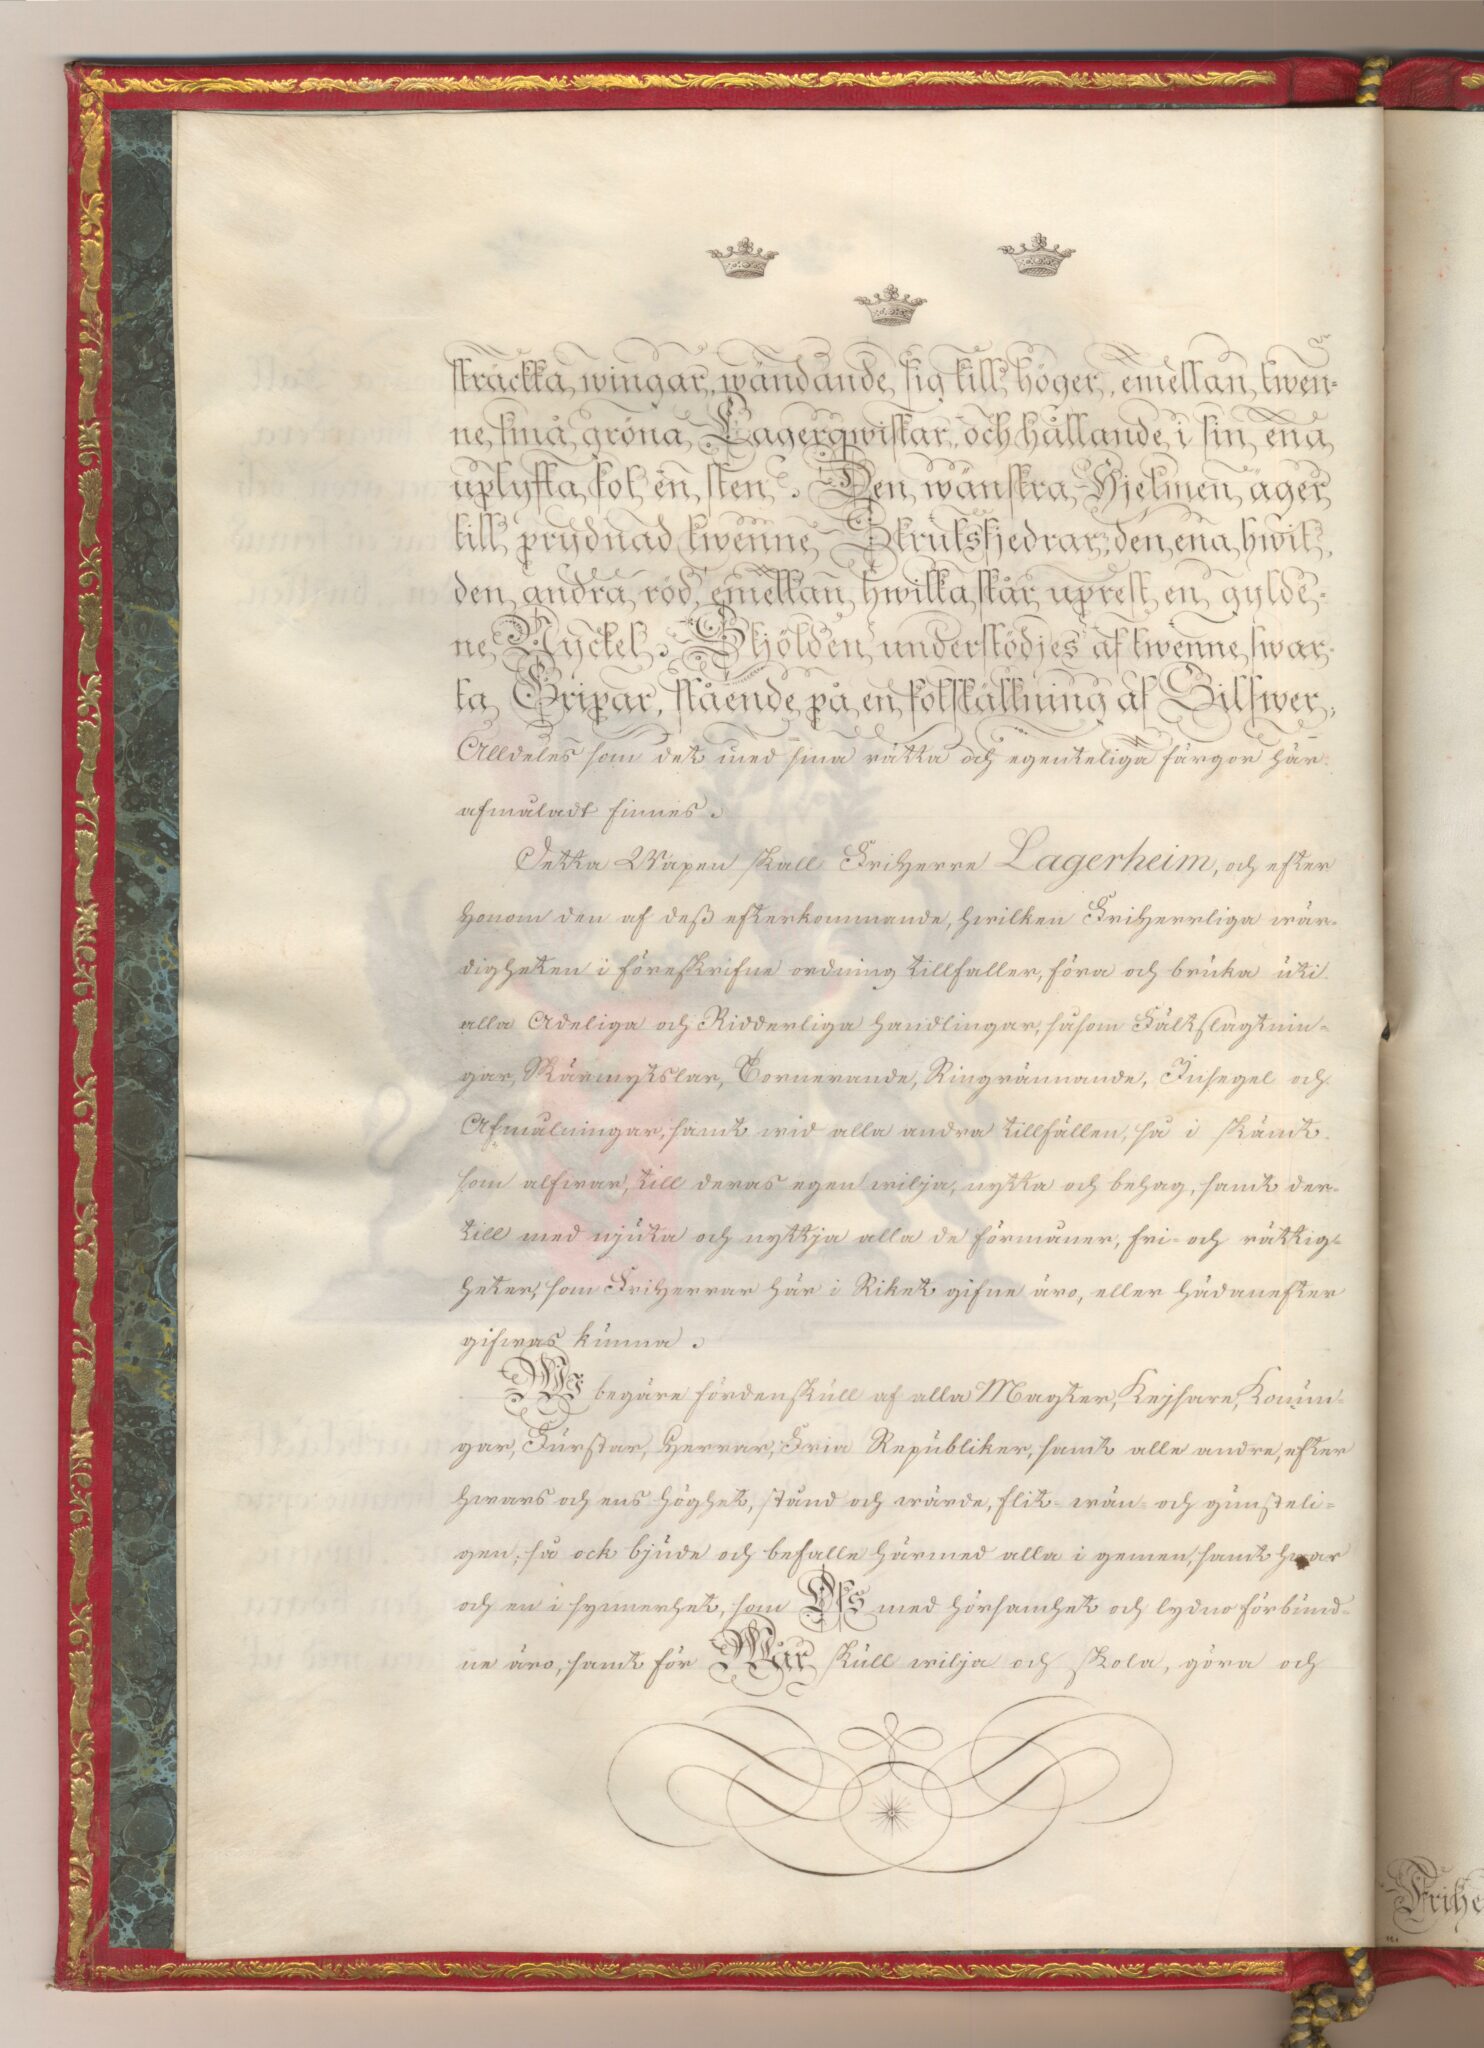 sträckta wingar, wändande sig till höger, emellan twen-
ne små gröna Lagerqwistar, och hållande i sin ena
uplyfta fot en sten. Den wänstra Hjelmen äger
till prydnad twenne Strutsfjedrar, den ena hwit,
den andra röd, emellan hwilka står uprest en gylde-
ne Nyckel. Skjölden understödjes af twenne swar-
ta Gripar, stående på en fotställning af Silfwer,
Alldeles som det med sina rätta och egenteliga färgor här
afmåladt finnes.
Detta Wapen skall FriHerre Lagerheim, och efter
honom den af deß efterkommande, hwilken FriHerrliga wär-
digheten i föreskrifne ordning tillfaller, föra och bruka uti
alla Adeliga och Ridderliga handlingar, såsom Fältslagtnin-
gar, Skärmytslar, Tornerande, Ringrännande, Insegel och
Afmålningar, samt wid alla andra tillfällen, så i skämt
som alfwar, till deras egen wilja, nytta och behag, samt der-
till med njuta och nyttja alla de förmåner, fri- och rättig-
heter, som FriHerrar här i Riket gifne äro, eller hädanefter
gifwas kunna.
Wi begäre fördenskull af alla Magter, Kejsare, Konun-
gar, Furstar, Herrar, Fria Republiker, samt alle andre, efter
hwars och ens höghet, stånd och wärde, flit- wän- och gunsteli-
gen, så ock bjude och befalle härmed alla i gemen, samt hwar
och en i synnerhet, som Oss med hörsamhet och lydno förbund-
ne äro, samt för Wår skull wilja och skola, göra och
Frihe